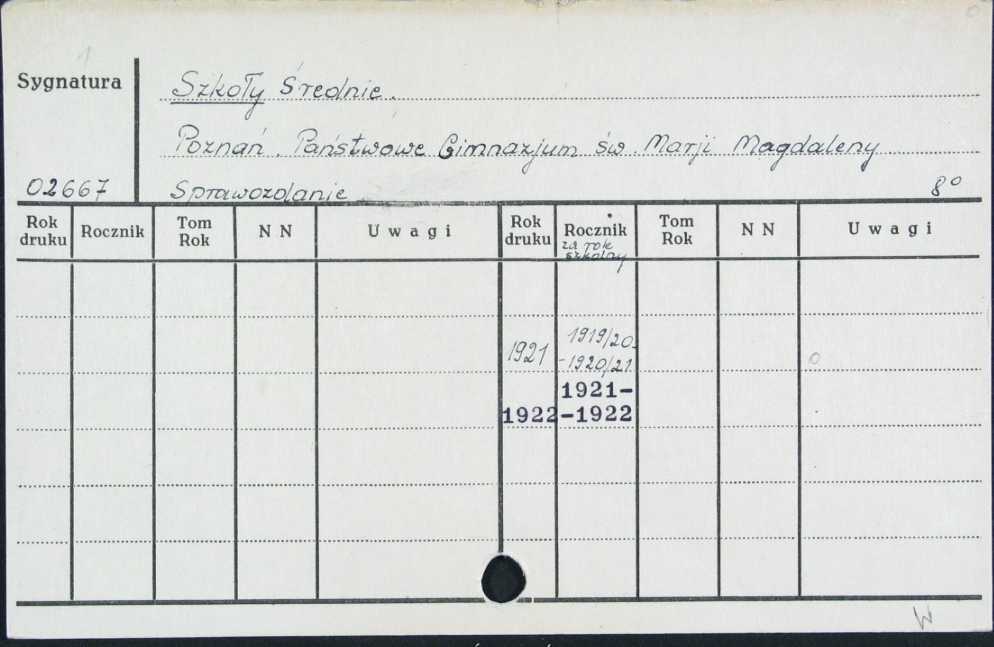 Sygnatura
Szkoły Średnie.
Poznań. Państwowe Gimnazjum św. Marji Magdaleny
02667 Sprawozdanie 8°
Rok druku Rocznik Tom Rok N N Uwagi Rok druku Rocznik za rok szkolny Tom Rok N N Uwagi
1921 1919/20-
-1920/21
1921-
1922 -1922
W